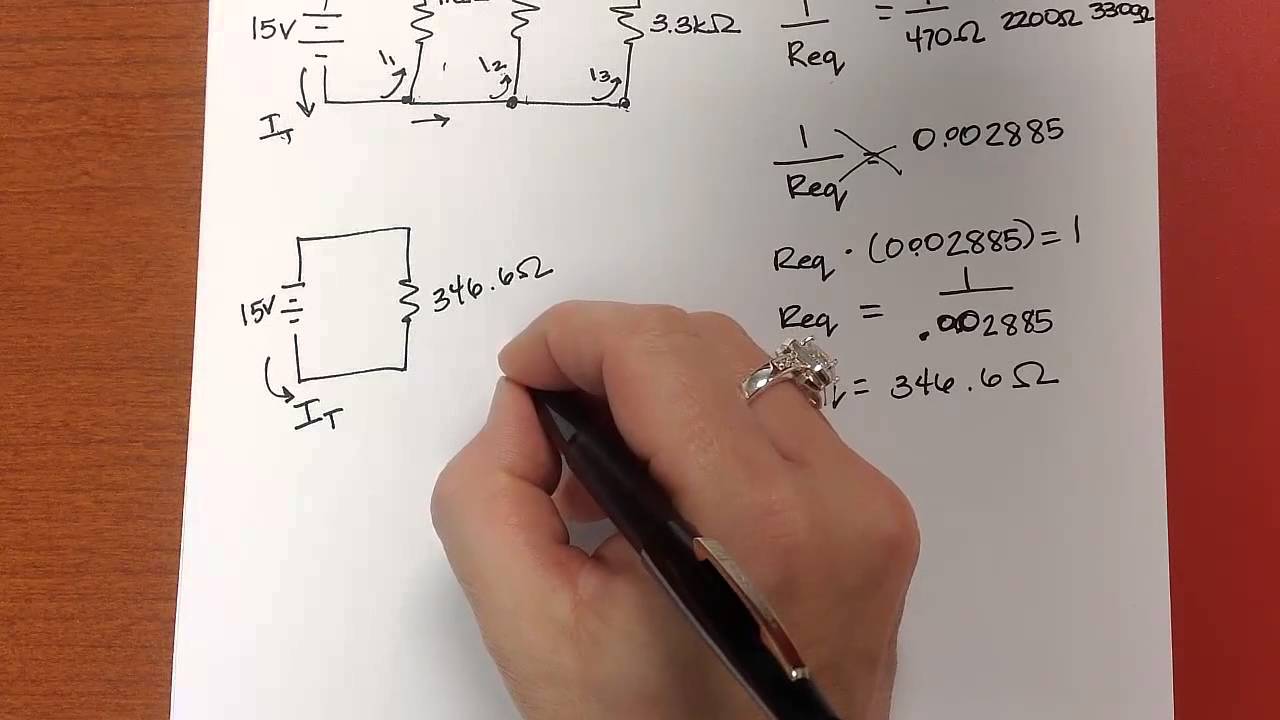 15V
3.3kΩ
I1
I2
I3
IT
1/Req = 1/470Ω 2200Ω 3300Ω
1/Req = 0.002885
Req · (0.002885) = 1
Req = 1/.002885
= 346.6Ω
15V
346.6Ω
IT